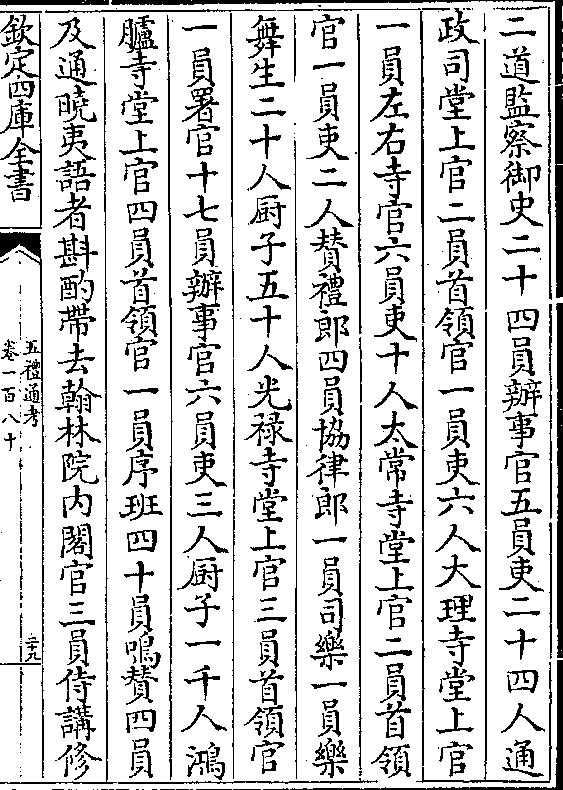 二道監察御史二十四員辦事官五員吏二十四人通
政司堂上官二員首領官一員吏六人大理寺堂上官
一員左右寺官六員吏十人太常寺堂上官二員首領
官一員吏二人賛禮郎四員協律郎一員司樂一員樂
舞生二十人厨子五十人光禄寺堂上官三員首領官
一員署官十七員辦事官六員吏三人厨子一千人鴻
臚寺堂上官四員首領官一員序班四十員鳴賛四員
及通曉夷語者斟酌帶去翰林院内閣官三員侍講修
欽定四庫全書
五禮通考
卷一百八十
三十九